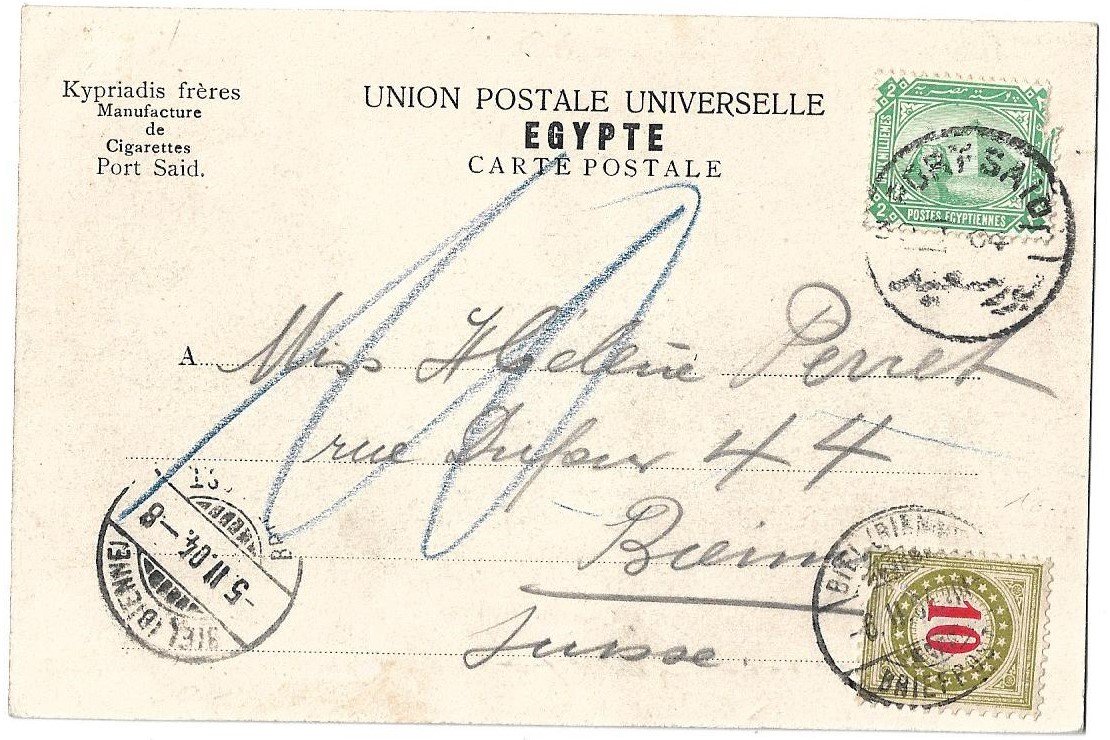 Kypriadis frères
Manufacture
de
Cigarettes
Port Said.
UNION POSTALE UNIVERSELLE
EGYPTE
CARTE POSTALE
2 بوسته مصرية
MILLIEMES
2 POSTES EGYPTIENNES
PORT SAID
04
بورسعيد
A Miss Hélène Perret
rue Dufour 44
Bienne
Suisse.
BIEL (BIENNE)
-5.II.04.-8
BIEL (BIENNE)
-6.II.04
BRIEF
10